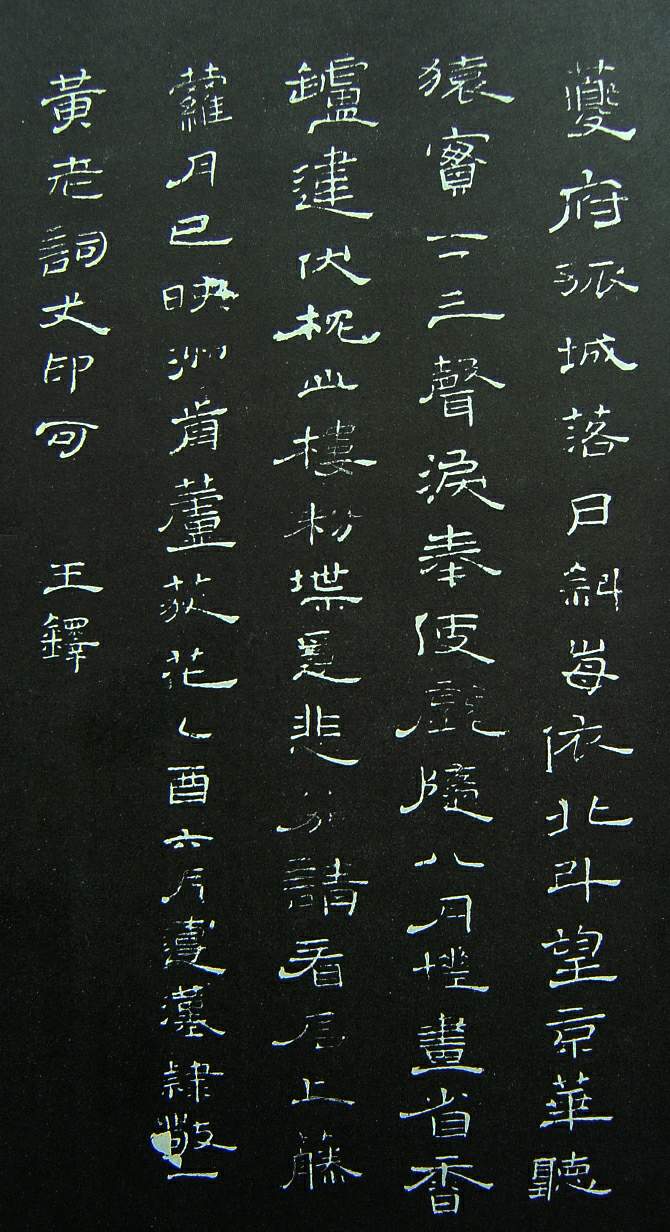 夔府孤城落日斜每依北斗望京華聽
猿實下三聲淚奉使虛隨八月槎畫省香
鑪違伏枕山樓粉堞悲笳請看石上籐
蘿月已映洲前蘆荻花乙酉六月漢隸敬一
黃老詞丈印可 王鐸